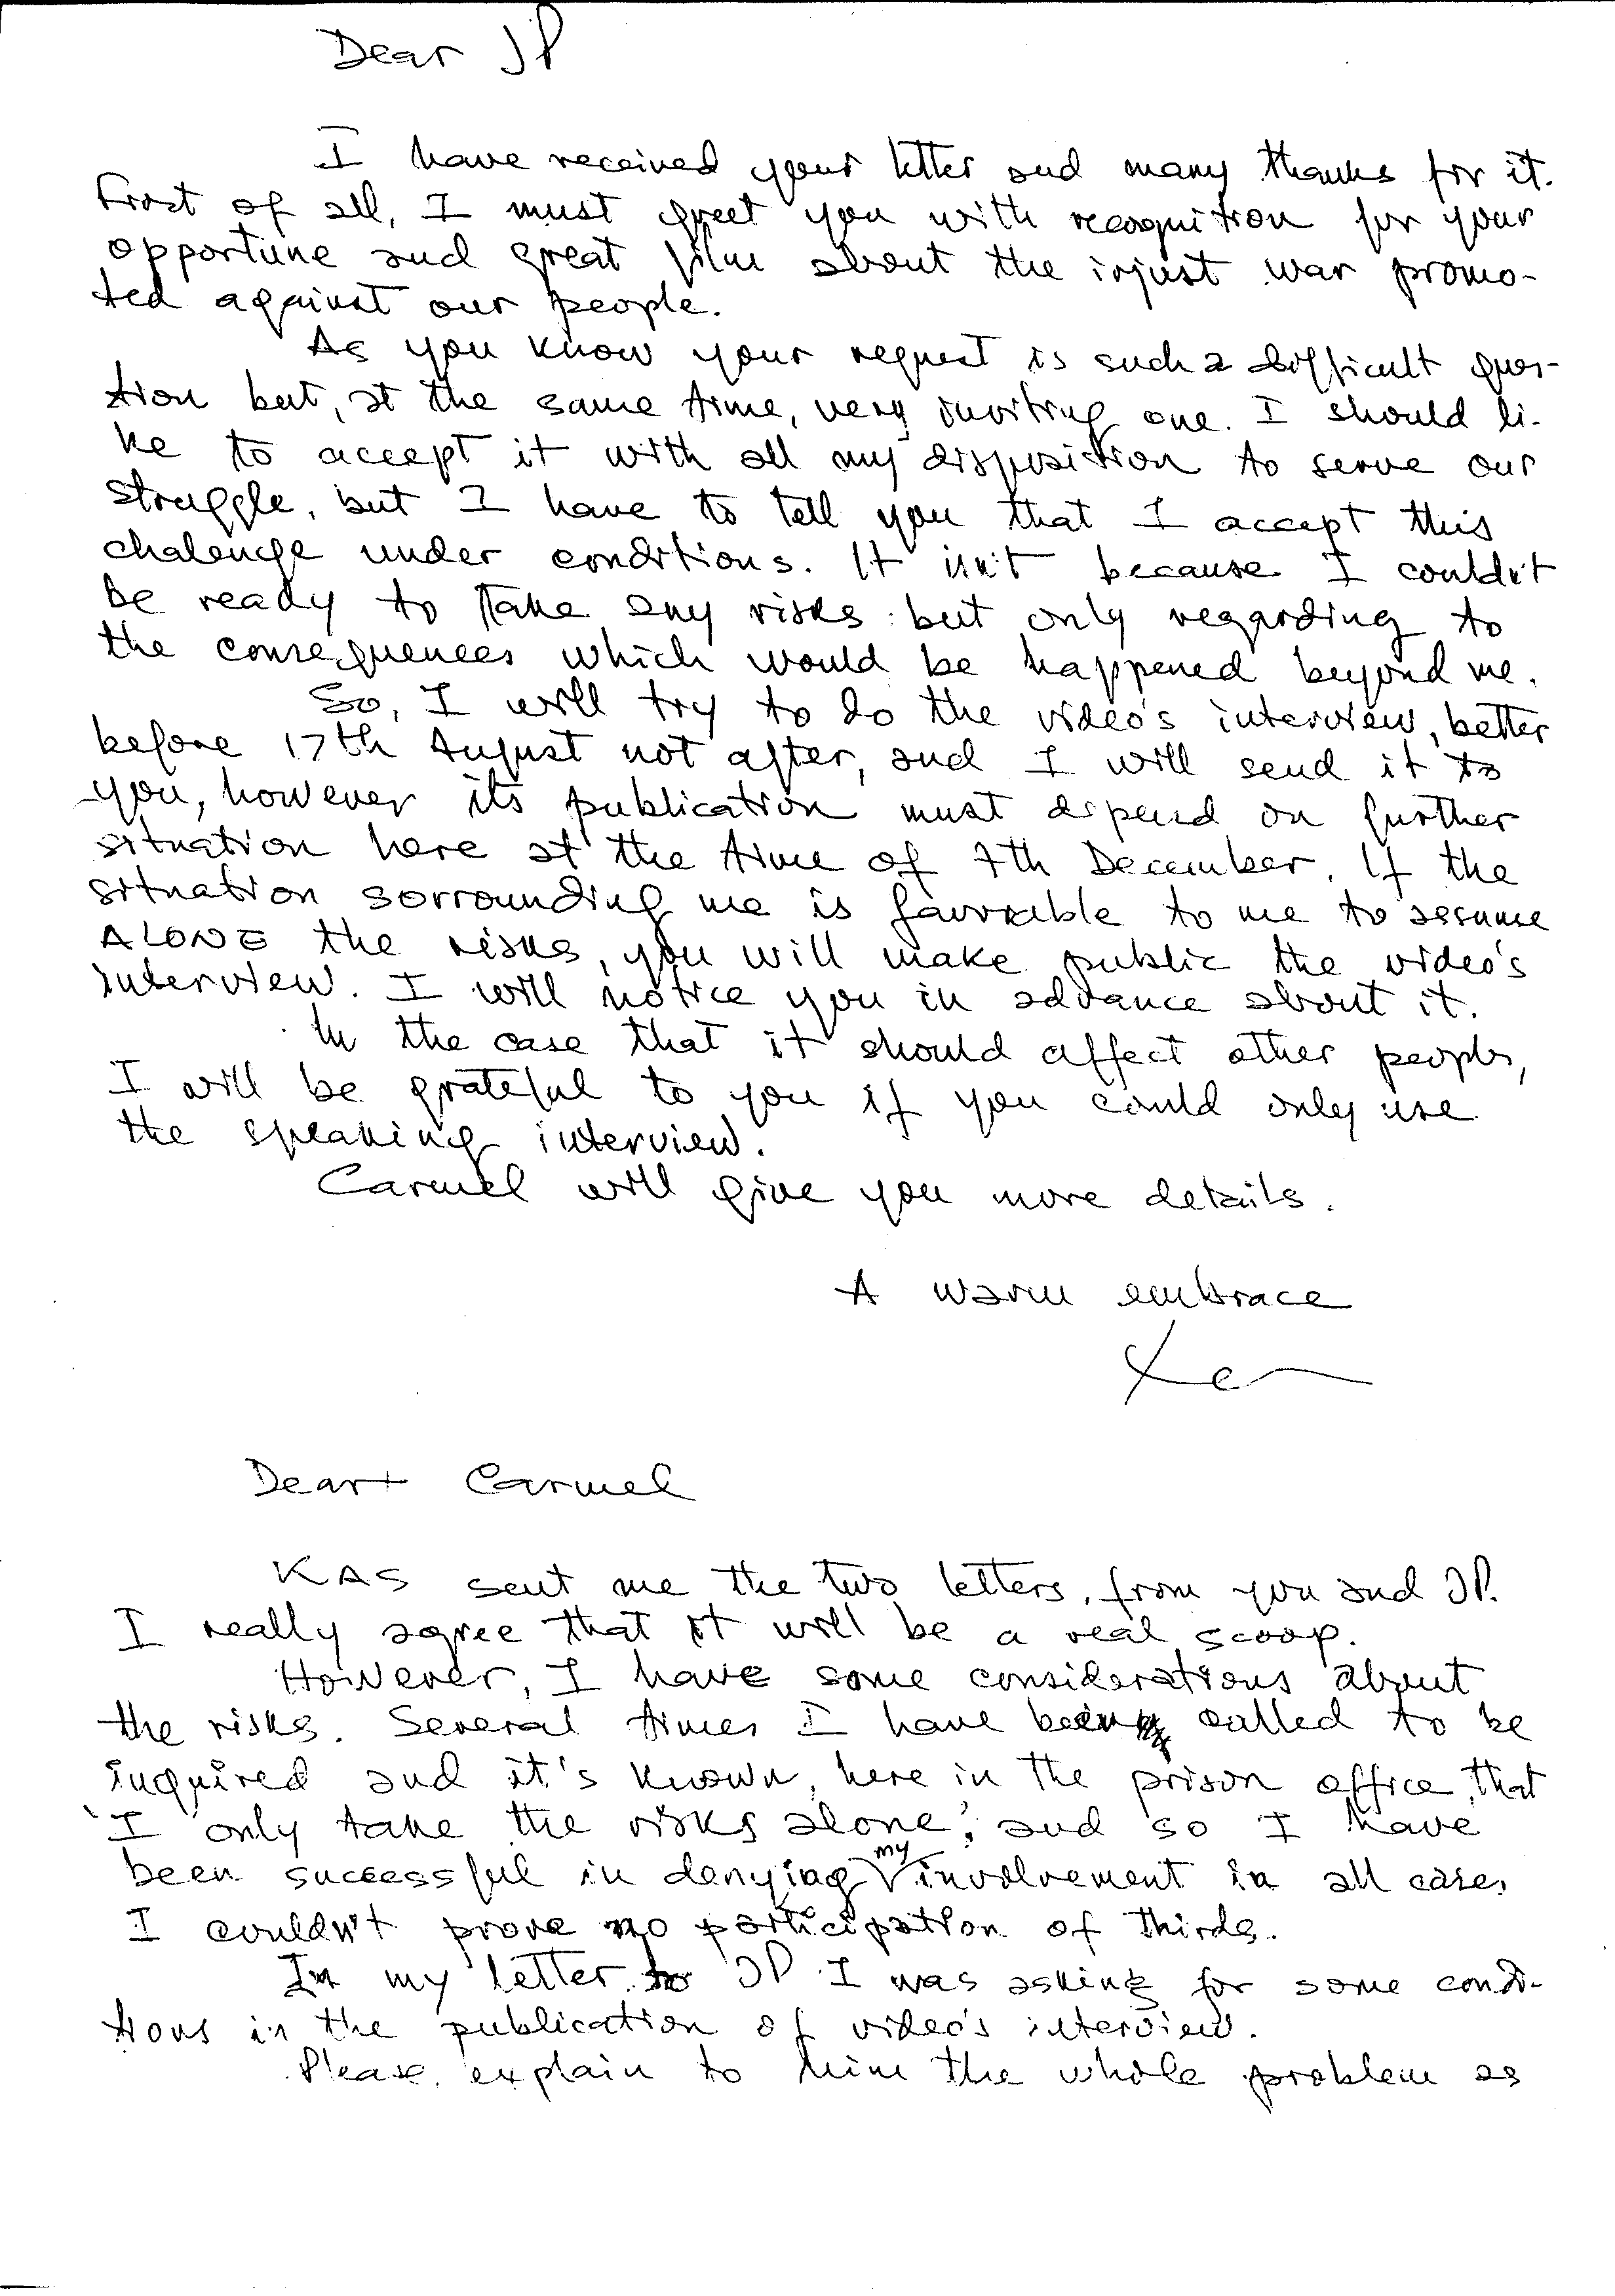 Dear JP
I have received your letter and many thanks for it.
First of all, I must greet you with recognition for your
opportune and great film about the injust war promo-
ted against our people.
As you know your request is such a difficult ques-
tion but, at the same time, very inviting one. I should li-
ke to accept it with all my disposition to serve our
struggle, but I have to tell you that I accept this
chalenge under conditions. It isn't because I couldn't
be ready to take any risks but only regarding to
the consequences which would be happened beyond me.
So, I will try to do the video's interview, better
before 17th August not after, and I will send it to
you, however its publication must depend on further
situation here at the time of 7th December. If the
situation sorrounding me is favorable to me to assume
ALONE the risks, you will make public the video's
interview. I will notice you in advance about it.
In the case that it should affect other people,
I will be grateful to you if you could only use
the speaking interview.
Carmel will give you more details.
A warm embrace
Xa
Dear Carmel
KAS sent me the two letters, from you and JP.
I really agree that it will be a real scoop.
However, I have some considerations about
the risks. Several times I have been called to be
inquired and it's known, here in the prison office, that
"I only take the risks alone", and so I have
been successful in denying my involvement in all cases
I couldn't prove no participation of thirds.
In my letter to JP I was asking for some condi-
tions in the publication of video's interview.
Please explain to him the whole problem as